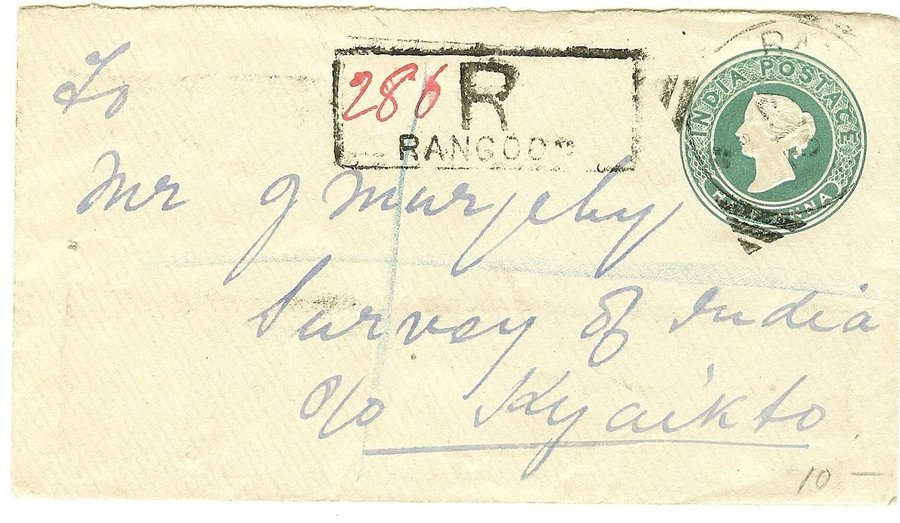 To
286 R
RANGOON
INDIA POSTAGE
Mr J Murphy
Survey of India
P/o Kyaikto
10 —